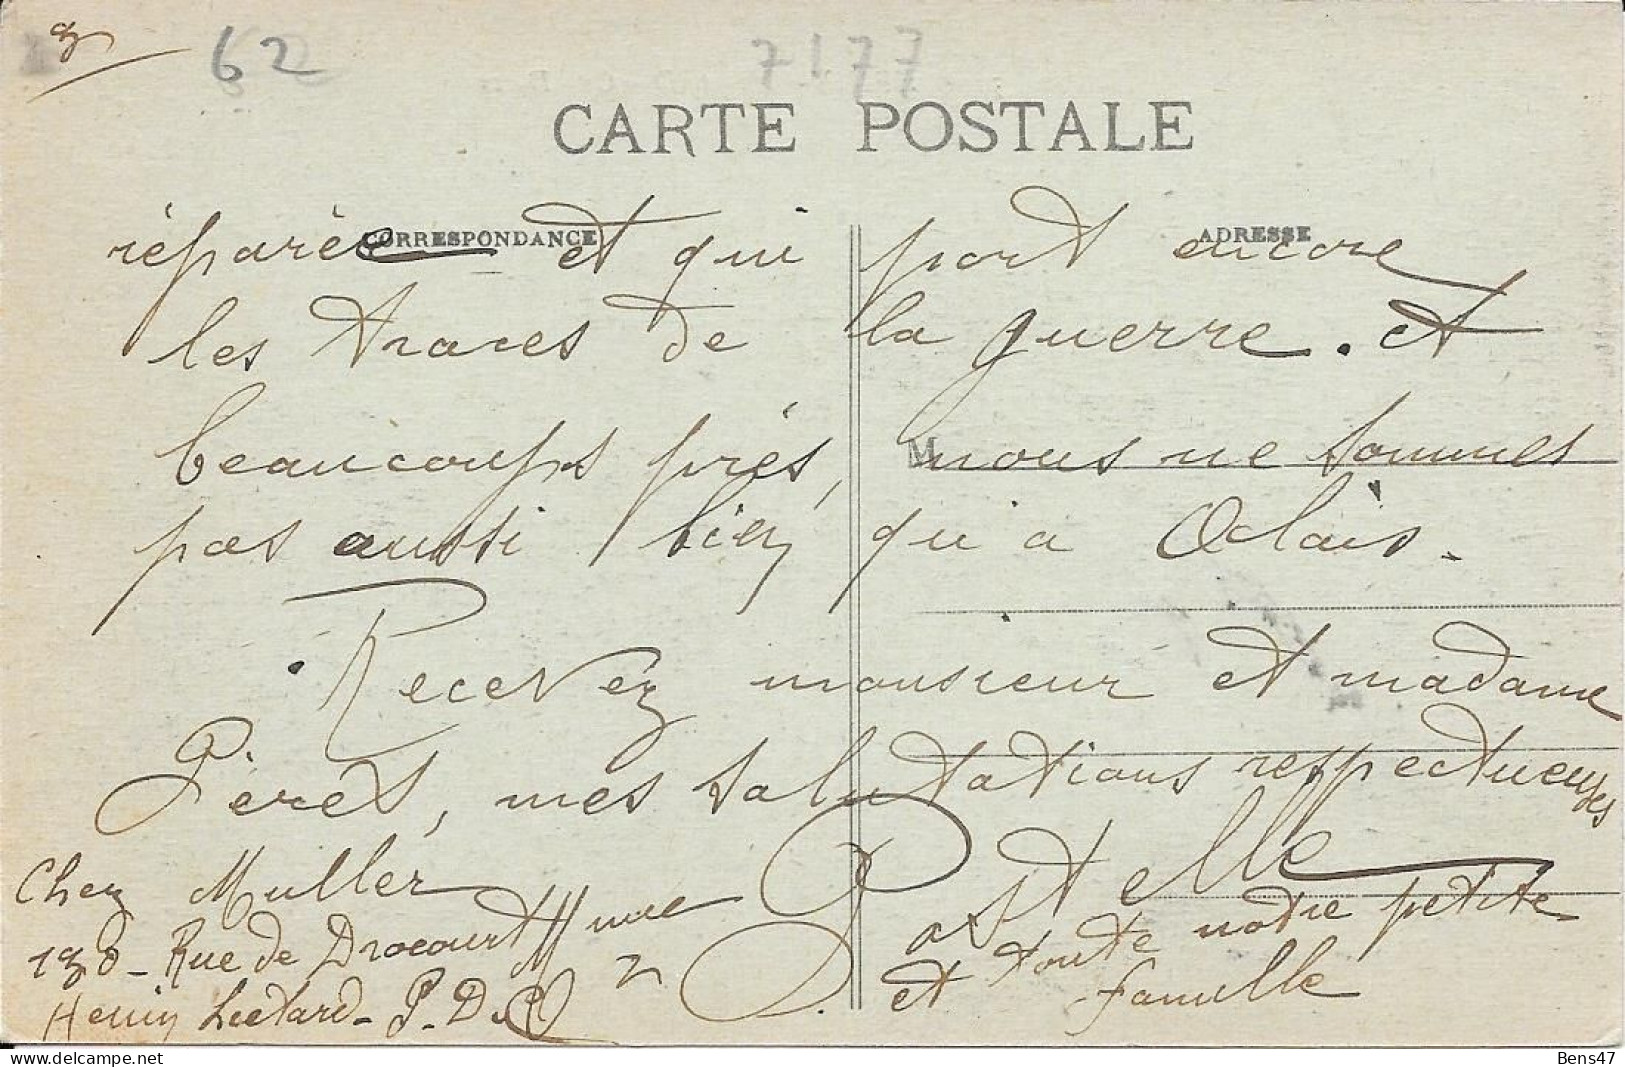 62
7177
CARTE POSTALE
CORRESPONDANCE
ADRESSE
réparée et qui port encore
les traces de la guerre. et
beaucoups près, nous ne sommes
pas aussi bien qu'a Calais.
Recevez monsieur et madame
Pérès, mes salutations respectueuses
Chez Muller
Mme Postelle
et toute notre petite
et famille
Rue de Drocourt
Henin Lietard - P. D. C.
Bens47